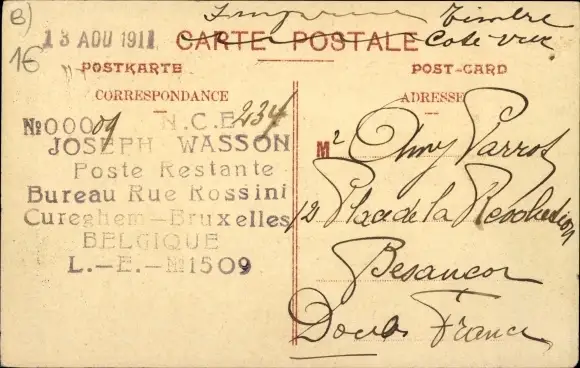 B)
1€
13 AOU 1911
Imprimé Timbre
CARTE POSTALE Coté vue
POSTKARTE
POST-CARD
CORRESPONDANCE
ADRESSE
№ 00009 N.C.E 234
JOSEPH WASSON
Poste Restante
Bureau Rue Rossini
Cureghem-Bruxelles
BELGIQUE
L.-E.-№1509
M Amy Parrot
12 Place de la Révolution
Besançon
Doubs France